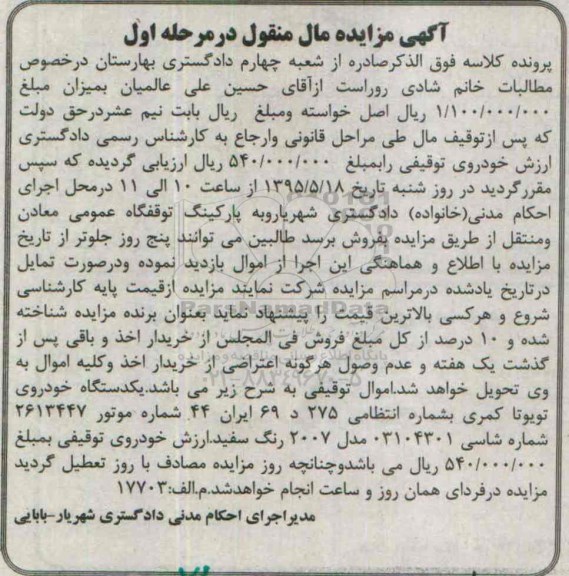 آگهی مزایده مال منقول درمرحله اول
پرونده کلاسه فوق الذکرصادره از شعبه چهارم دادگستری بهارستان درخصوص
مطالبات خانم شادی روراست ازآقای حسین علی عالمیان بمیزان مبلغ
۱/۱۰۰/۰۰۰/۰۰۰ ریال اصل خواسته ومبلغ ریال بابت نیم عشردرحق دولت
که پس ازتوقیف مال طی مراحل قانونی وارجاع به کارشناس رسمی دادگستری
ارزش خودروی توقیفی رابمبلغ ۵۴۰/۰۰۰/۰۰۰ ریال ارزیابی گردیده که سپس
مقررگردید در روز شنبه تاریخ ۱۳۹۵/۵/۱۸ از ساعت ۱۰ الی ۱۱ درمحل اجرای
احکام مدنی(خانواده) دادگستری شهریاروبه پارکینگ توقفگاه عمومی معادن
ومنتقل از طریق مزایده بفروش برسد طالبین می توانند پنج روز جلوتر از تاریخ
مزایده با اطلاع و هماهنگی این اجرا از اموال بازدید نموده ودرصورت تمایل
درتاریخ یادشده درمراسم مزایده شرکت نمایند مزایده ازقیمت پایه کارشناسی
شروع و هرکسی بالاترین قیمت را پیشنهاد نماید بعنوان برنده مزایده شناخته
شده و ۱۰ درصد از کل مبلغ فروش فی المجلس از خریدار اخذ و باقی پس از
گذشت یک هفته و عدم وصول هرگونه اعتراضی از خریدار اخذ وکلیه اموال به
وی تحویل خواهد شد.اموال توقیفی به شرح زیر می باشد.یکدستگاه خودروی
تویوتا کمری بشماره انتظامی ۲۷۵ د ۶۹ ایران ۴۴ شماره موتور ۲۶۱۳۴۴۷
شماره شاسی ۰۳۱۰۴۳۰۱ مدل ۲۰۰۷ رنگ سفید.ارزش خودروی توقیفی بمبلغ
۵۴۰/۰۰۰/۰۰۰ ریال می باشدوچنانچه روز مزایده مصادف با روز تعطیل گردید
مزایده درفردای همان روز و ساعت انجام خواهدشد.م.الف:۱۷۷۰۳
مدیراجرای احکام مدنی دادگستری شهریار-بابایی
ParsNamadData